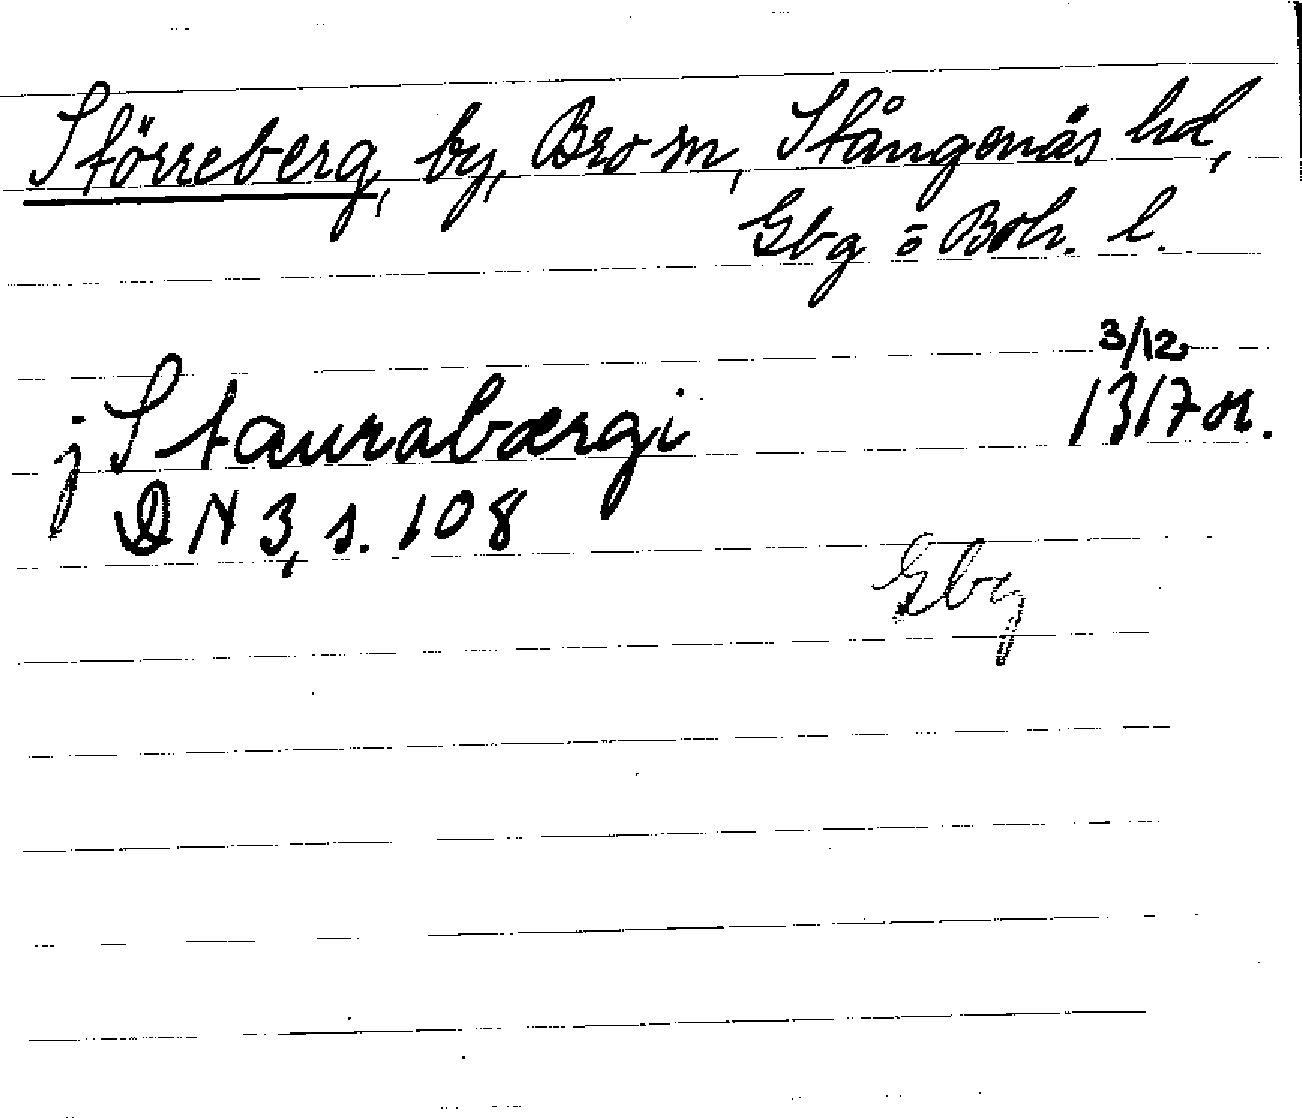 Störreberg, by, Bro sn, Stångenäs hd,
Gbg o Boh. l.
3/12
j Staurabærgi 1317 or.
DN 3, s. 108
Gbg